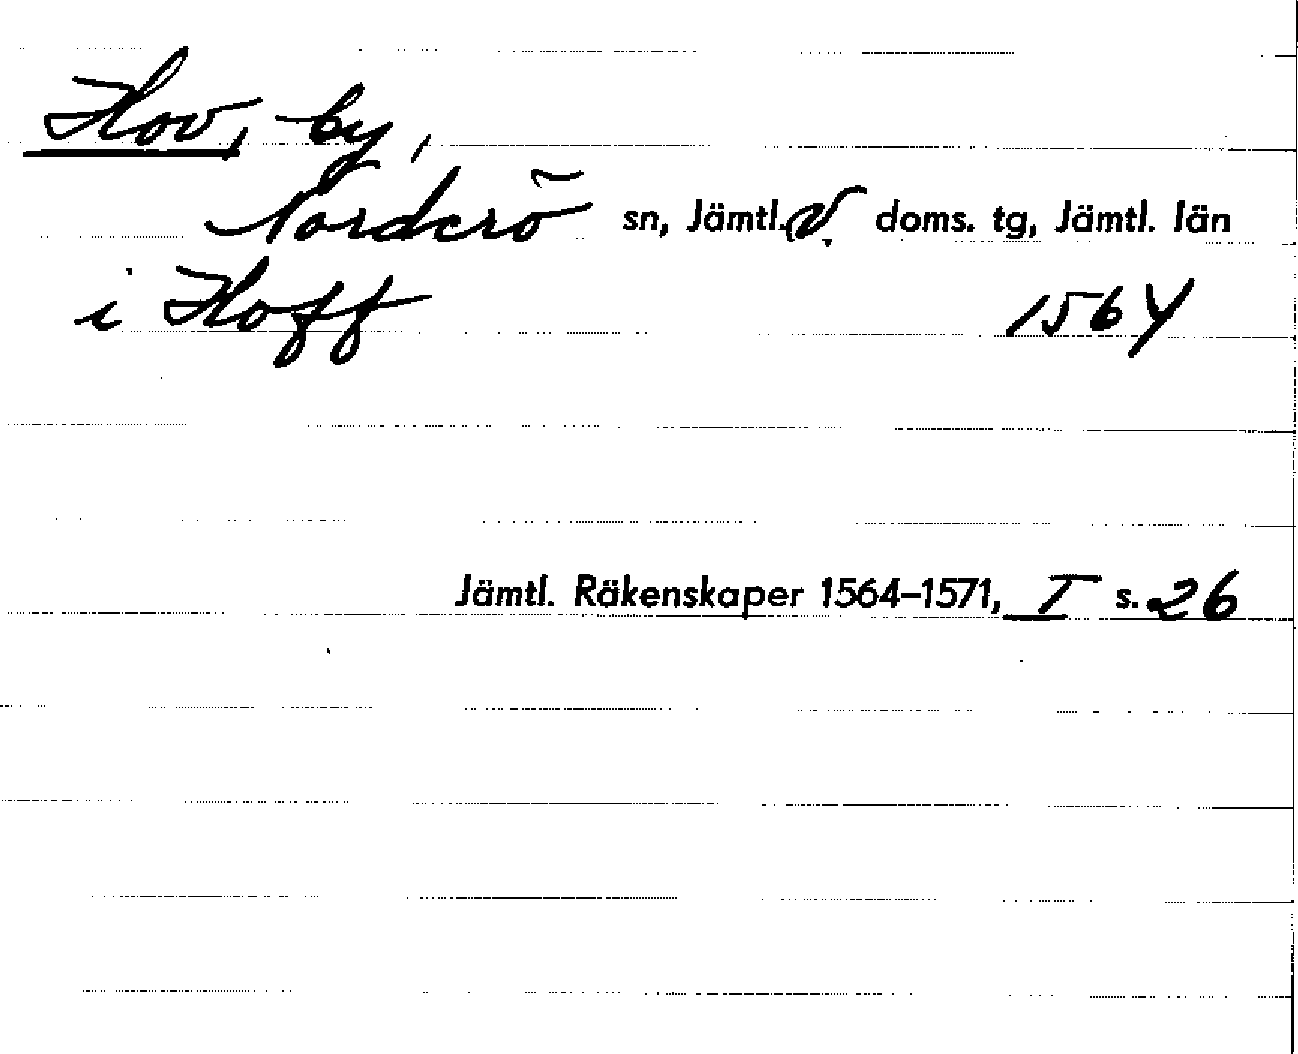 Hov, by,
Norderö sn, Jämtl. V. doms. tg, Jämtl. län
i Hoff 1564
Jämtl. Räkenskaper 1564–1571, I s. 26